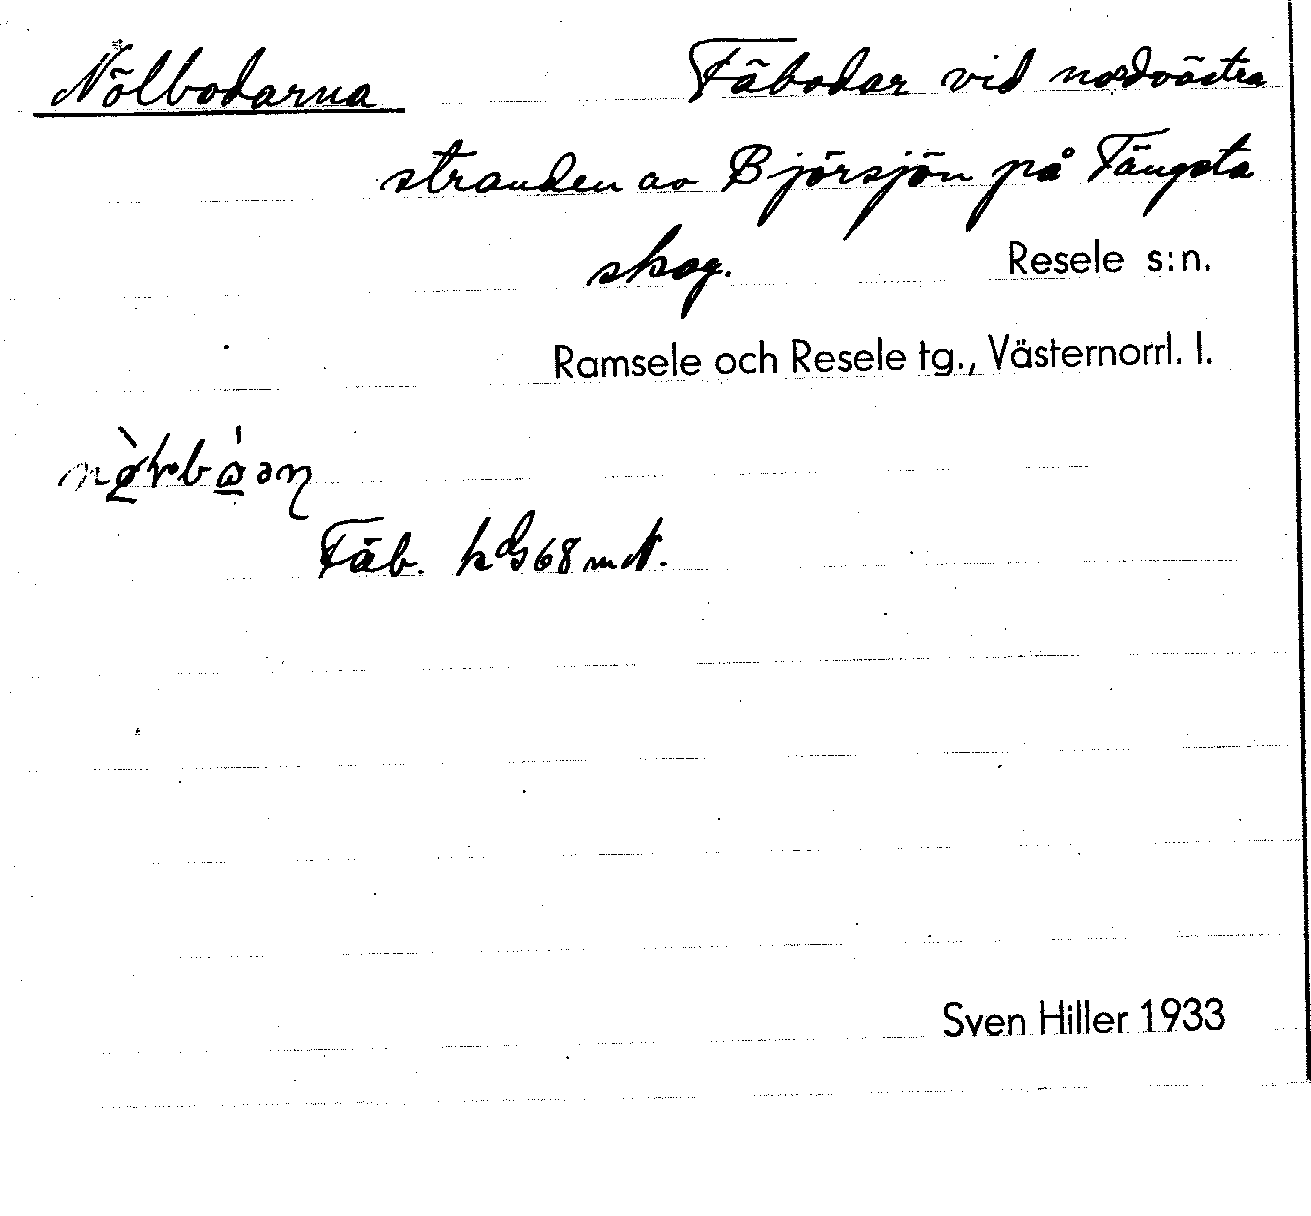 Nölbodarna Fäbodar vid nordvästra
stranden av Björsjön på Tängsta
skog. Resele s:n.
Ramsele och Resele tg., Västernorrl. l.
Fäb. kds 68
Sven Hiller 1933